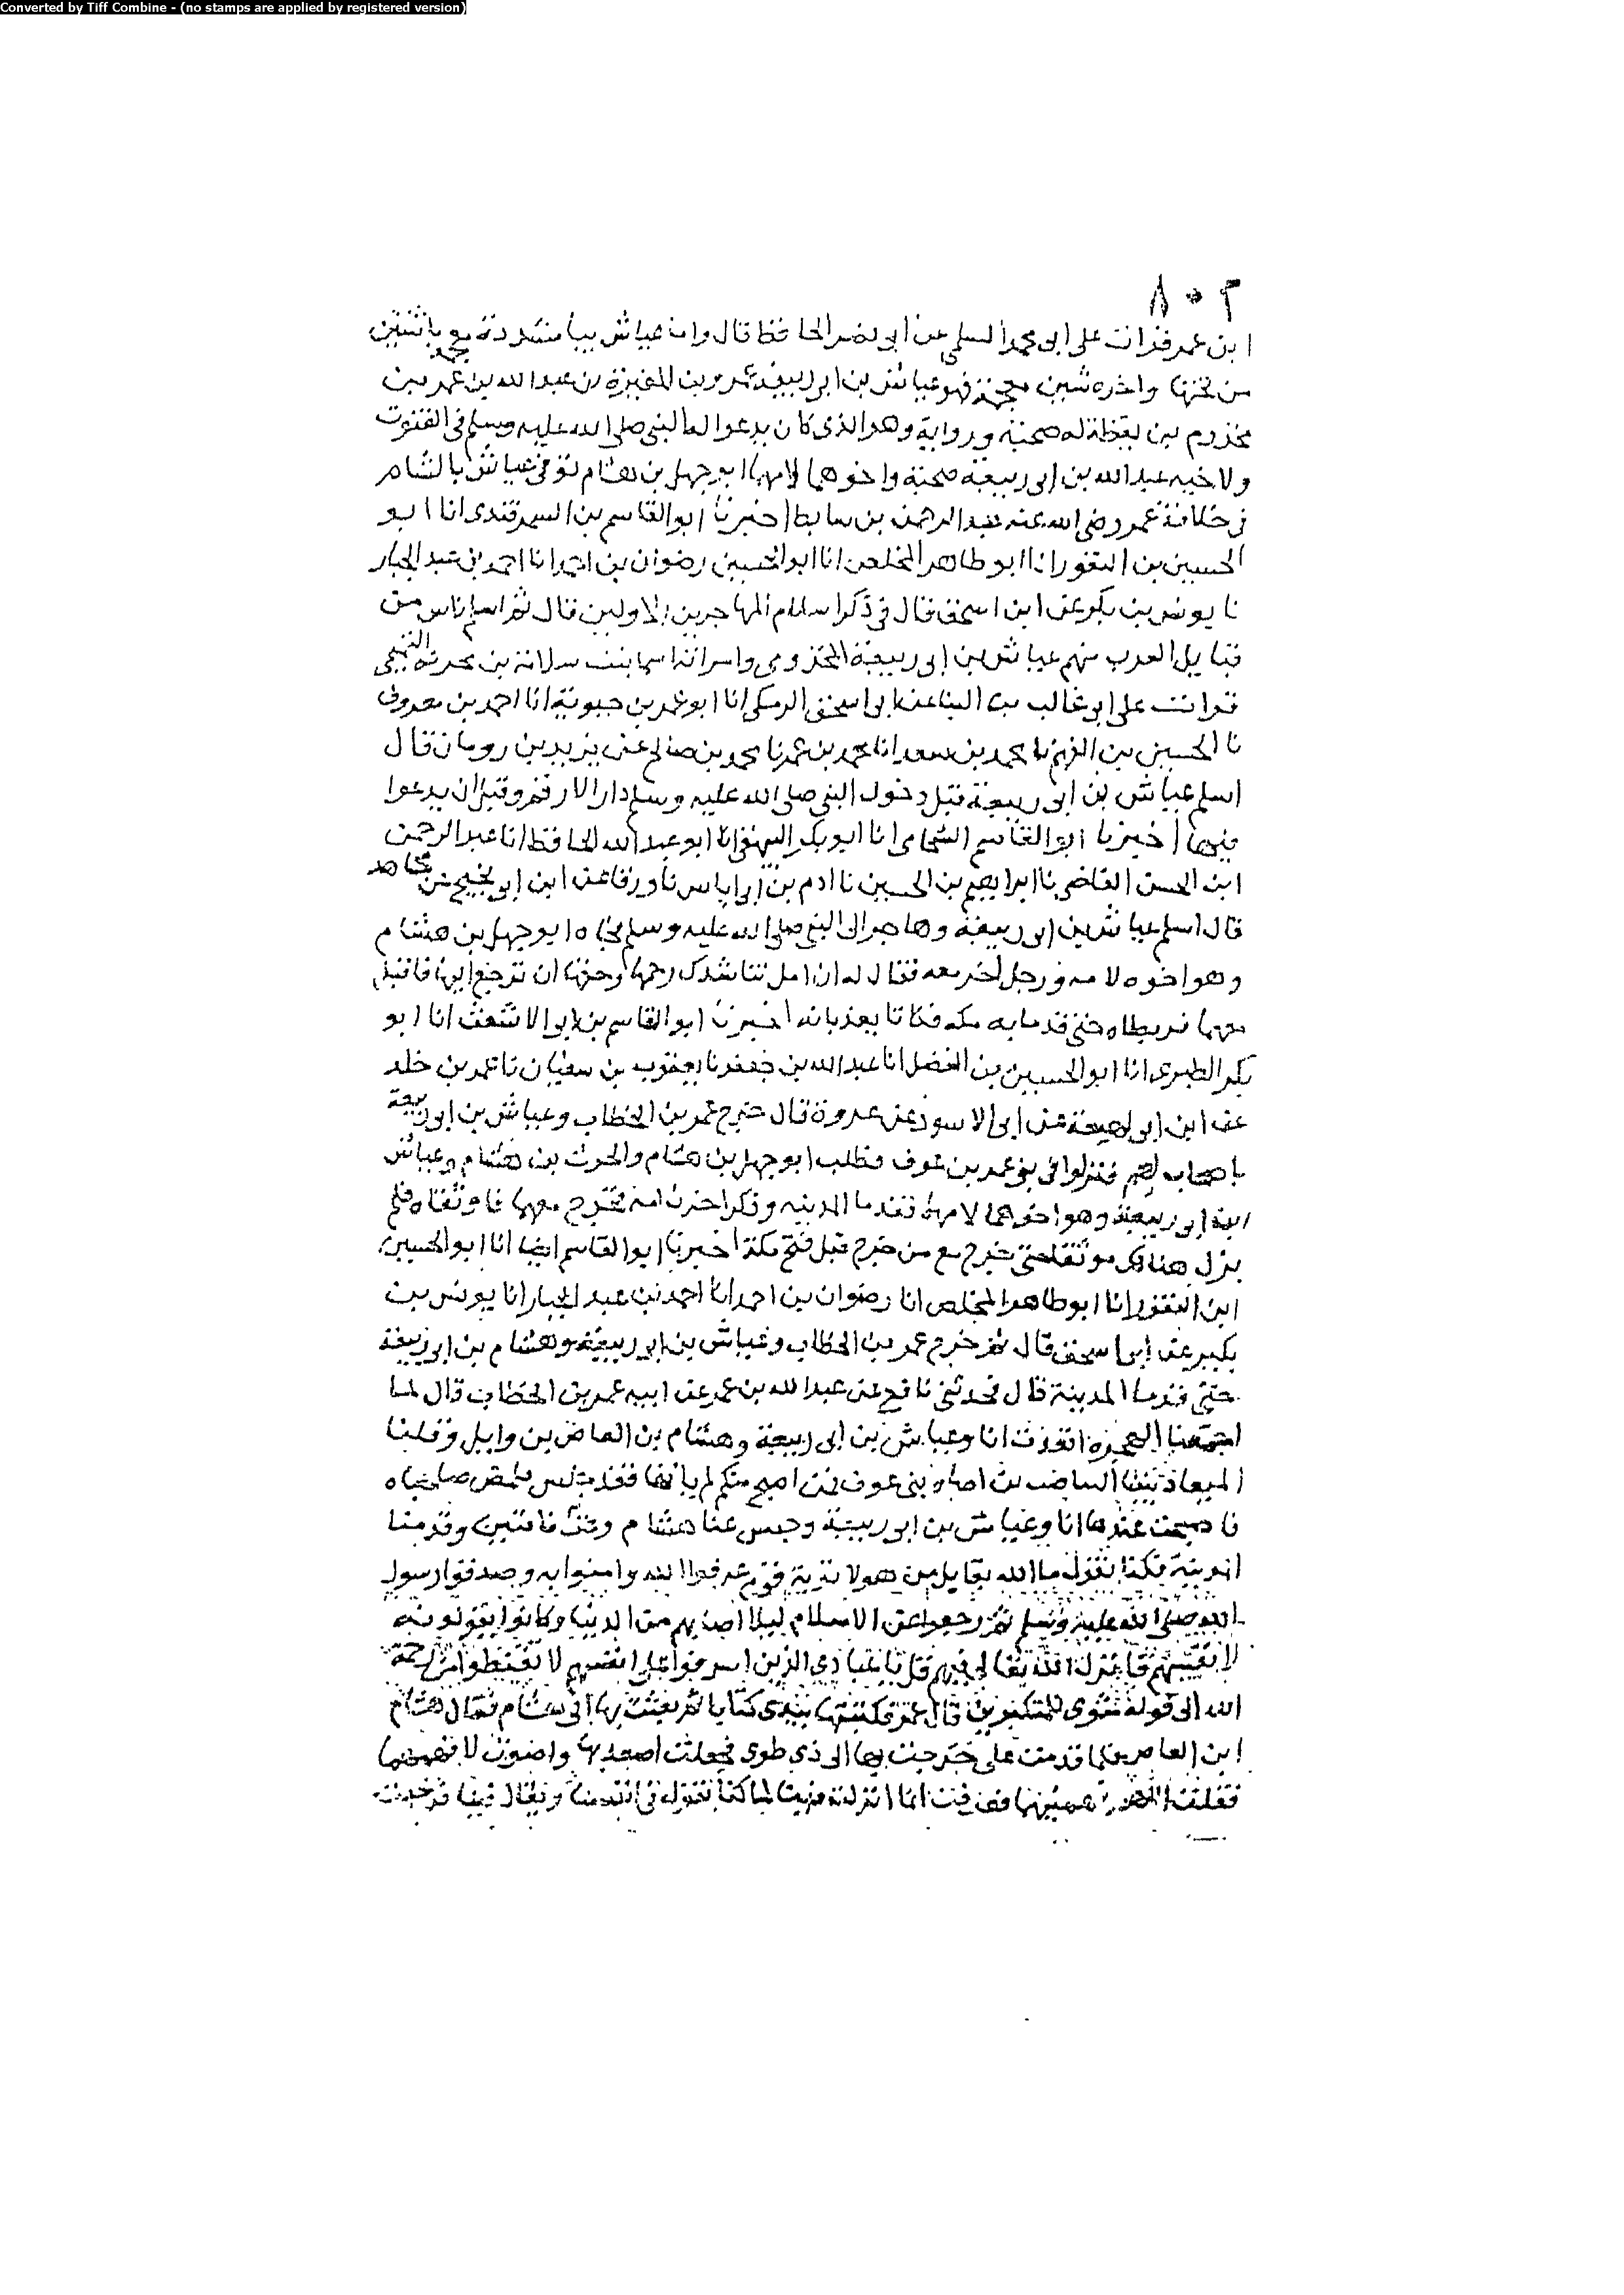 Converted by Tiff Combine - (no stamps are applied by registered version)
٨٠٣
ابن عمر قرات على ابى محمد السلمى عن ابى نصر الحافظ قال واما عياش بيا مشددة معجمة باثنتين
من تحتها واخره شين معجمة فهو عياش بن ابى ربيعة عمرو بن المغيرة بن عبد الله بن عمر بن
مخزوم بن يقظة له صحبة ورواية وهو الذى كان يدعوا له النبى صلى الله عليه وسلم فى القنوت
ولاخيه عبد الله بن ابى ربيعة صحبة واخوهما لامهما ابو جهل بن هشام توفى عياش بالشام
فى خلافة عمر رضى الله عنه عبد الرحمن بن سابط اخبرنا ابو القاسم بن السمرقندى انا ابو
الحسين بن النقور انا ابو طاهر المخلص انا ابو الحسين رضوان بن احمد انا احمد بن عبد الجبار
نا يونس بن بكر عن ابن اسحق قال فى ذكر اسلام المهاجرين الاولين قال ثم اسلم ناس من
قبايل العرب منهم عياش بن ابى ربيعة المخزومى وامراته اسما بنت سلامة بن مخربة التميمى
قرات على ابى غالب بن البنا عن ابى اسحق البرمكى انا ابو عمر بن حيوية انا احمد بن معروف
نا الحسين بن الفهم نا محمد بن سعد انا محمد بن عمر نا محمد بن صالح عن يزيد بن رومان قال
اسلم عياش بن ابى ربيعة قبل دخول النبى صلى الله عليه وسلم دار الارقم وقبل ان يدعوا
فيها اخبرنا ابو القاسم الشحامى انا ابو بكر البيهقى انا ابو عبد الله الحافظ انا عبد الرحمن
ابن الحسن القاضى نا ابراهيم بن الحسين نا ادم بن ابى اياس نا ورقا عن ابن ابى نجيح عن مجاهد
قال اسلم عياش بن ابى ربيعة وهاجر الى النبى صلى الله عليه وسلم فجاه ابو جهل بن هشام
وهو اخوه لامه ورجل اخر معه فقال له ان امك تناشدك رحمها وحقها ان ترجع اليها فاقبل
معهما فربطاه حتى قدما به مكه فكانا يعذبانه اخبرنا ابو القاسم بن ابى الاشعث انا ابو
بكر الطبرى انا ابو الحسين بن الفضل انا عبد الله بن جعفر نا يعقوب بن سفيان نا عمر بن خلد
عن ابن ابى لهيعة عن ابى الاسود عن عروة قال خرج عمر بن الخطاب وعياش بن ابى ربيعة
باصحاب لهم فنزلوا فى بنى عمر بن عوف فطلب ابو جهل بن هشام والحرث بن هشام عياش
ابن ابى ربيعة وهو اخوهما لامهما فقدما المدينه وذكرا حزن امه فخرج معهما فاوثقاه فلم
يزل هنالك موثقا حتى خرج مع من خرج قبل فتح مكة اخبرنا ابو القاسم ايضا انا ابو الحسين
ابن النقور انا ابو طاهر المخلص انا رضوان بن احمد انا احمد بن عبد الجبار انا يونس بن
بكير عن ابن اسحق قال ثم خرج عمر بن الخطاب وعياش بن ابى ربيعة وهشام بن ابى ربيعة
حتى قدما المدينة قال فحدثنى نافع عن عبد الله بن عمر عن ابيه عمر بن الخطاب قال لما
اجتمعنا الهجرة اتعدت انا وعياش بن ابى ربيعة وهشام بن العاص بن وايل وقلنا
الميعاد بيننا اضاة بنى عوف فمن اصبح منكم لم ياتها فقد حبس فليمض صاحباه
فاصبحت عندها انا وعياش بن ابى ربيعة وحبس عنا هشام وفتن فافتتن وقدمنا
المدينة فكنا نقول ما الله بقابل من هولا توبة قوم عرفوا الله وامنوا به وصدقوا رسول
الله صلى الله عليه وسلم ثم رجعوا عن الاسلام لبلا اصابهم من الدنيا وكانوا يقولونه
لانفسهم فانزل الله تعالى فيهم قل يا عبادى الذين اسرفوا على انفسهم لا تقنطوا من رحمة
الله الى قوله مثوى للمتكبرين قال عمر فكتبتها بيدى كتابا ثم بعثت بها الى هشام فقال هشام
ابن العاص فلما قدمت على خرجت بها الى ذى طوى فجعلت اصعد بها واصوب لا افهمها
فقلت اللهم فهمنيها فعرفت انما انزلت فينا لما كنا نقول فى انفسنا ويقال فينا فرجعت